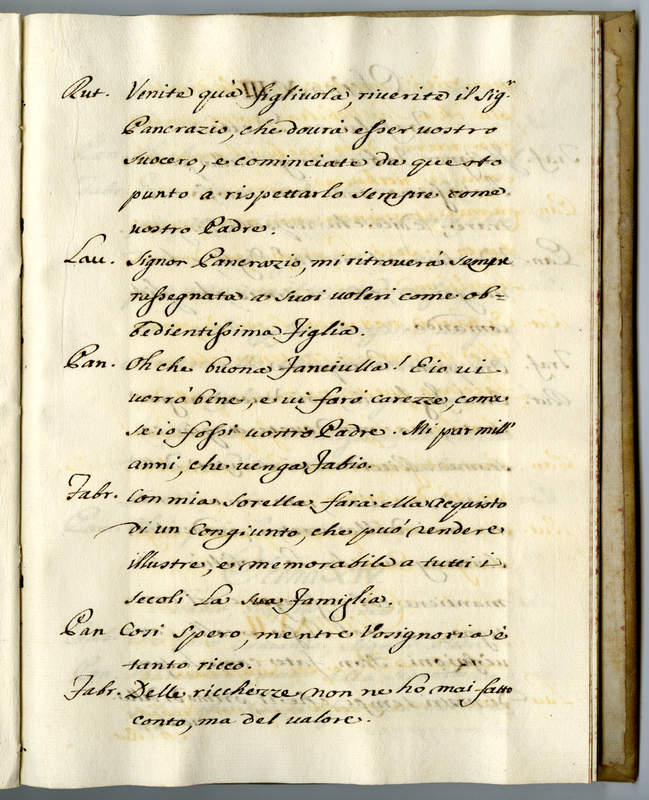 Rut. Venite quà figlivola, riverite il Sigr.
Pancrazio, che dourà esser vostro
suocero, e cominciate da questo
punto a rispettarlo sempre come
vostro Padre.
Lau. Signor Pancrazio, mi ritroverà sempre
rassegnata a suoi voleri come ob=
bedientissima figlia.
Pan. Oh che buona fanciulla! E io vi
vorrò bene, e vi farò carezze, come
se io fossi vostro Padre. Mi par mill'
anni, che venga Fabio.
Fabr. Con mia sorella farà ella acquisto
di un Congiunto, che può rendere
illustre, e memorabile a tutti i
secoli La sua famiglia.
Pan Così spero, mentre Vosignoria è
tanto ricco.
Fabr. Delle ricchezze non ne ho mai fatto
conto, ma del valore.